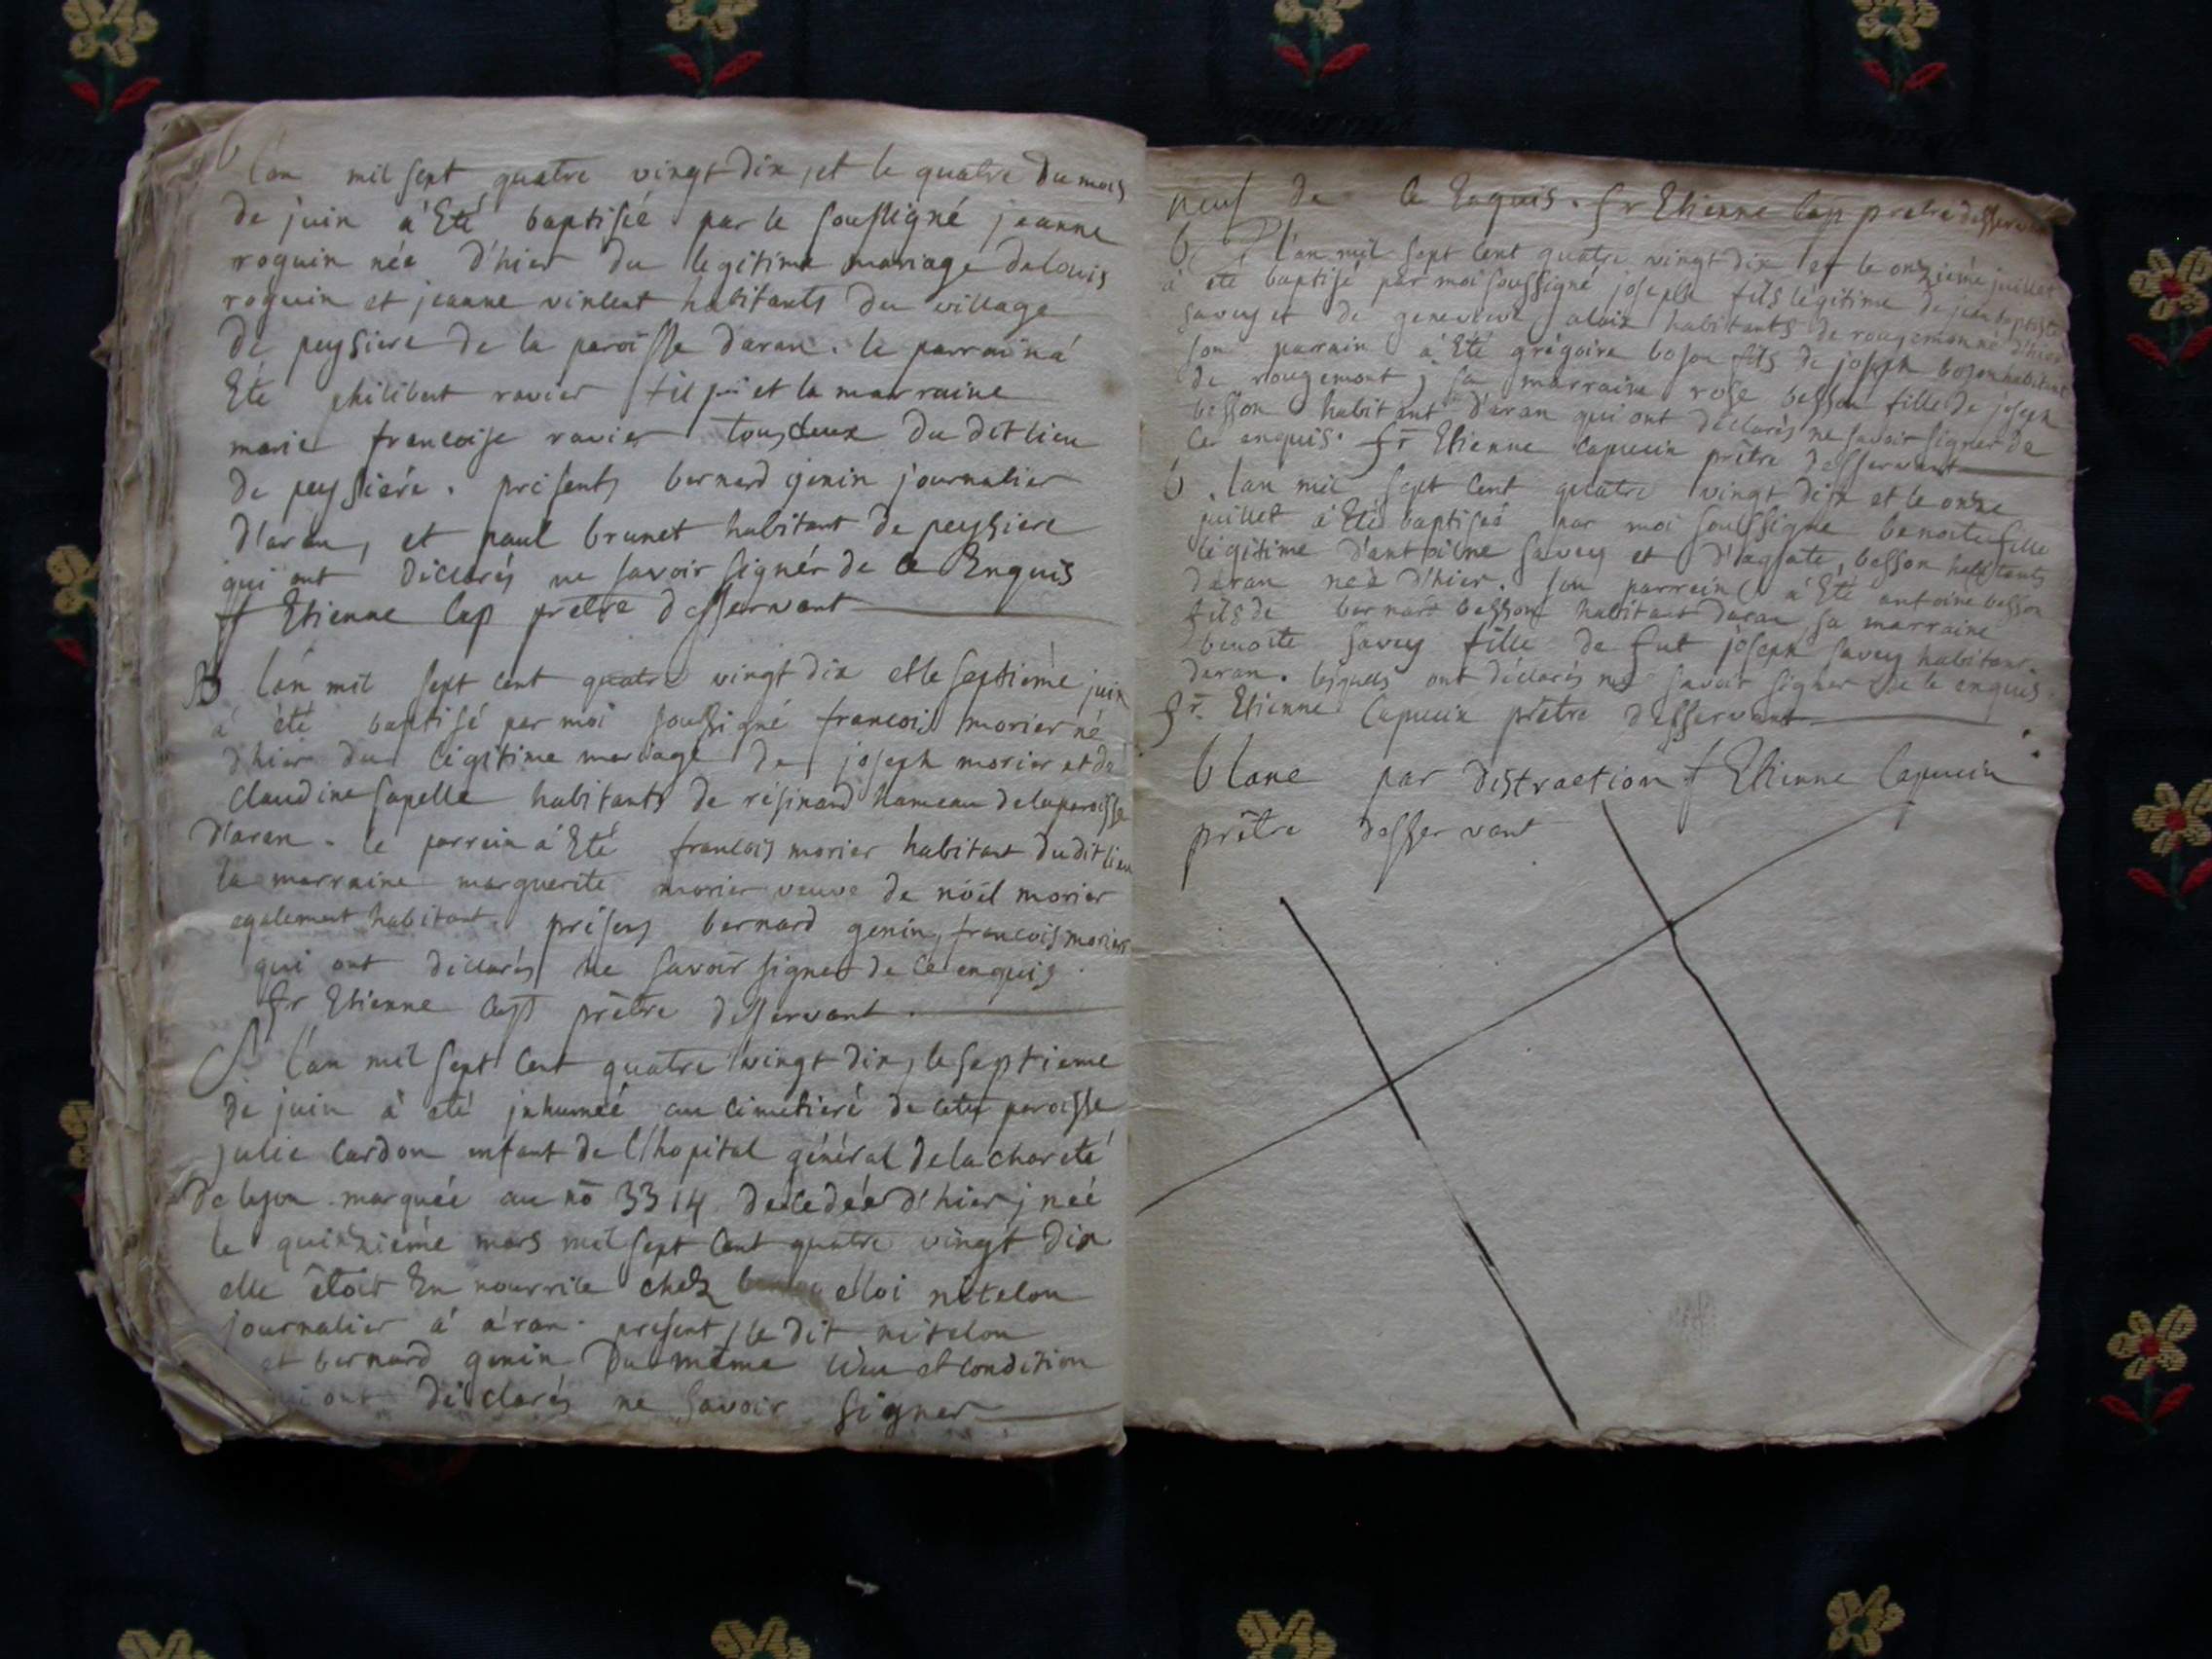 b
lan mil sept quatre vingt dix, et le quatre du mois
de juin à Eté baptisée par le soussigné jeanne
roguin née d'hier du legitime mariage de louis
roguin et jeanne vincent habitants du village
de peysiere de la paroisse daran. le parrain à
Eté philibert ravier et la marraine
marie francoise ravier tous deux du dit lieu
de peysiére. présents bernard genin journalier
d'aran, et paul brunet habitant de peysiere
qui ont déclarés ne savoir signér de ce Enquis
fr Etienne Cap prétre desservant
B lan mil sept cent quatre vingt dix et le septiéme juin
à été baptisé par moi soussigné francois morier né
d'hier du légitime mariage de joseph morier et de
Claudine sapelle habitants de résinand hameau de la paroisse
d'aran. le parrein à Eté francois morier habitant dudit lieu
la marraine marguerite morier veuve de nöel morier
egalement habitant. présens bernard genin, francois morier
qui ont déclarés ne savoir signer de ce enquis.
fr Etienne Cap prétre desservant.
S lan mil sept cent quatre vingt dix, le septieme
de juin à eté jnhumée au cimetieré de cete paroisse
julie cardon enfant de l'hopital général de la charité
de lyon marquée au no 3314 décédée d'hier, née
le quinziéme mars mil sept cent quatre vingt dix
elle étoit En nourrice chez eloi nitelon
journalier à àran. présent, le dit nitelon
et bernard genin du même lieu et condition
qui ont déclarés ne savoir signer
neuf de ce Enquis. fr Etienne Cap prétre desservant
b l'an mil sept cent quatre vingt dix et le onzieme juillet
à été baptisé par moi soussigné joseph fils légitime de jean baptiste
savey et de genevieve aloix habitants de rougemont né d'hier
son parrain à Eté grégoire boson fils de joseph boson habitant
de rougemont, sa marraine rose besson fille de joseph
besson habitant d'aran qui ont déclarés ne savoir signer de
ce enquis. fr Etienne capucin prétre desservant
b. lan mil sept cent quatre vingt dix et le onze
juillet à Eté baptisée par moi soussigné benoite fille
légitime d'antoine savey et d'agate besson habitants
daran née d'hier. son parrein à Eté antoine besson
fils de bernard besson habitant daran, sa marraine
benoite savey fille de fut joseph savey habitant
daran. lesquels ont déclarés ne savoir signer de ce enquis.
fr. Etienne Capucin prétre desservant
blanc par distraction f Etienne Capucin
prétre desservant